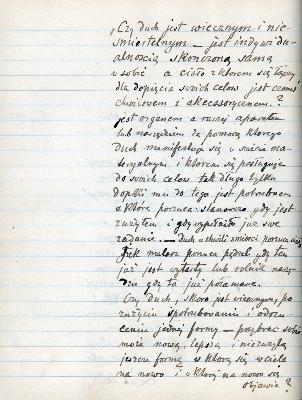 „Czy duch jest wiecznym i nie-
śmiertelnym – jest indywidu-
alnością skończoną samą
w sobie a ciało z którem się łączy
dla dopięcia swoich celów jest czemś
chwilowem i akcessoryznem?
jest organem a raczej aparatem
lub narzędziem za pomocą którego
Duch manifestuje się w świecie ma-
teryalnym i którem się posługuje
do swoich celów tak długo tylko
dopóki mu do tego jest potrzebnem
a które porzuca stanowczo gdy jest
zużytem i gdy wypełniło już swe
zadanie. – duch w chwili śmierci porzuca
Jak malarz porzuca pędzel gdy ten
już jest wytarty lub rolnik narzę-
dzie gdy to już połamane.
Czy Duch, skoro jest wiecznym, po
zużyciu spotrzebowaniu i odrzu-
ceniu jednej formy – przybrać sobie
może nową, lepszą i niezużytą
jeszcze formę w którą się wciela
na nowo i w której na nowo się
objawia?